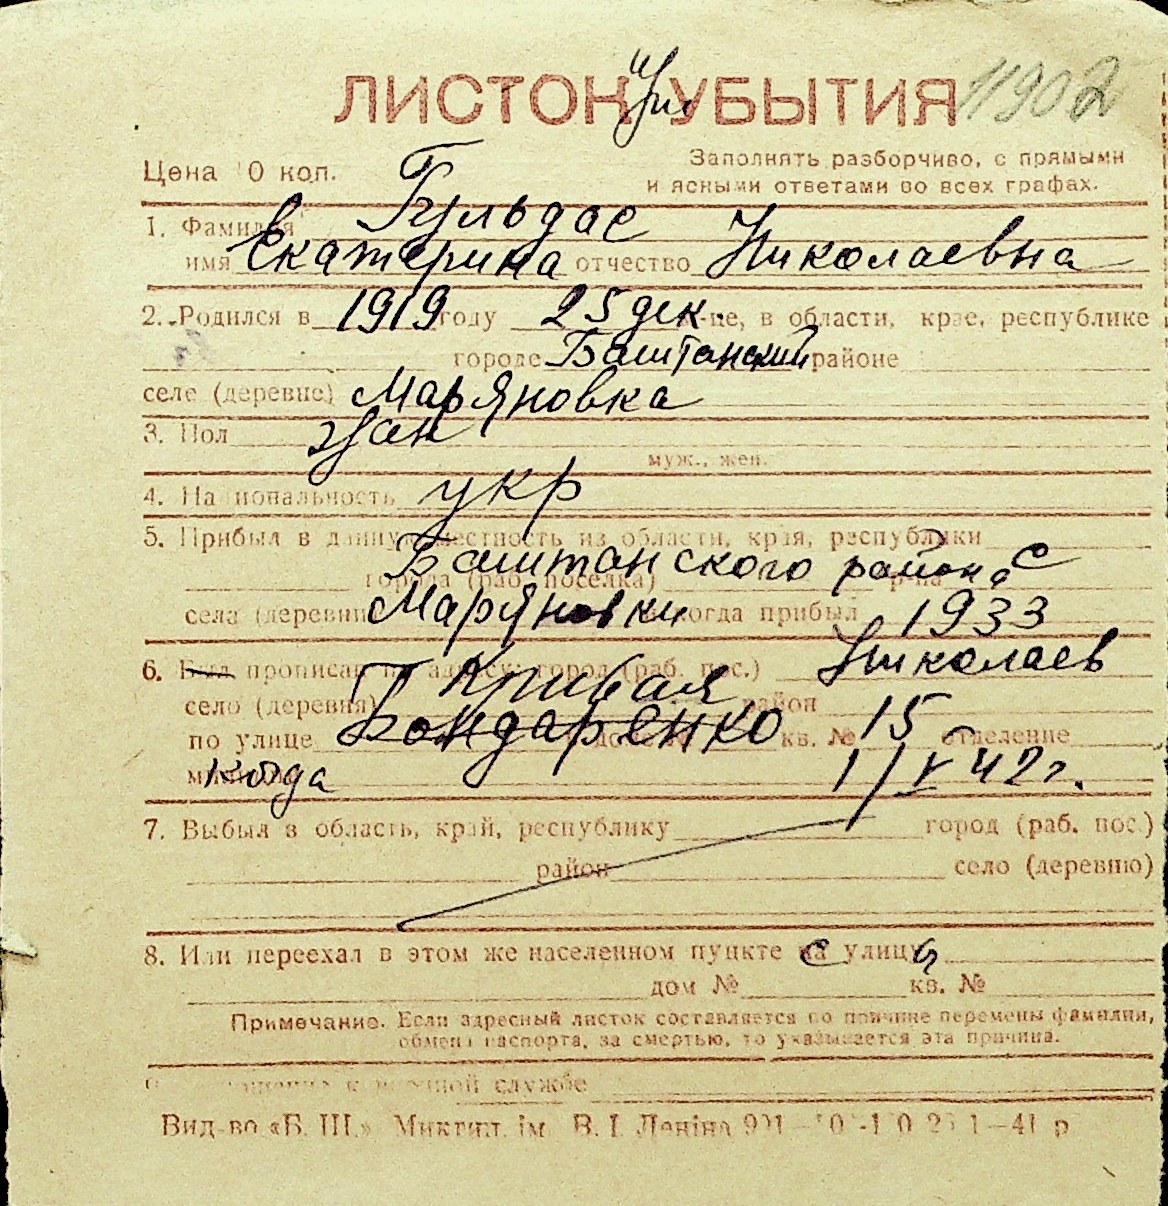 ЛИСТОК УБЫТИЯ 11902
Цена 10 коп.
Заполнять разборчиво, с прямыми
и ясными ответами во всех графах.
1. Фамилия Бульдас
имя Екатерина отчество Николаевна
2. Родился в 1919 году 25 дек. м-це, в области, крае, республике
городе Баштанский районе
селе (деревне) Маряновка
3. Пол жен
муж., жен.
4. Национальность укр
5. Прибыл в данную местность из области, края, республики
Баштанского района с
города (раб. поселка) р-на
села (деревни) Маряновки когда прибыл 1933
6. Был прописан по адресу: город (раб. пос.) Николаев
село (деревня) Кривая район
по улице Бондаренко кв. № 15 отделение
когда 1/V 42 г.
7. Выбыл в область, край, республику город (раб. пос.)
район село (деревню)
8. Или переехал в этом же населенном пункте на с улицу
дом № кв. №
Примечание. Если адресный листок составляется по причине перемены фамилии,
обмена паспорта, за смертью, то указывается эта причина.
службе
Вид-во «Б. Ш.» Миктип. ім. В. І. Леніна